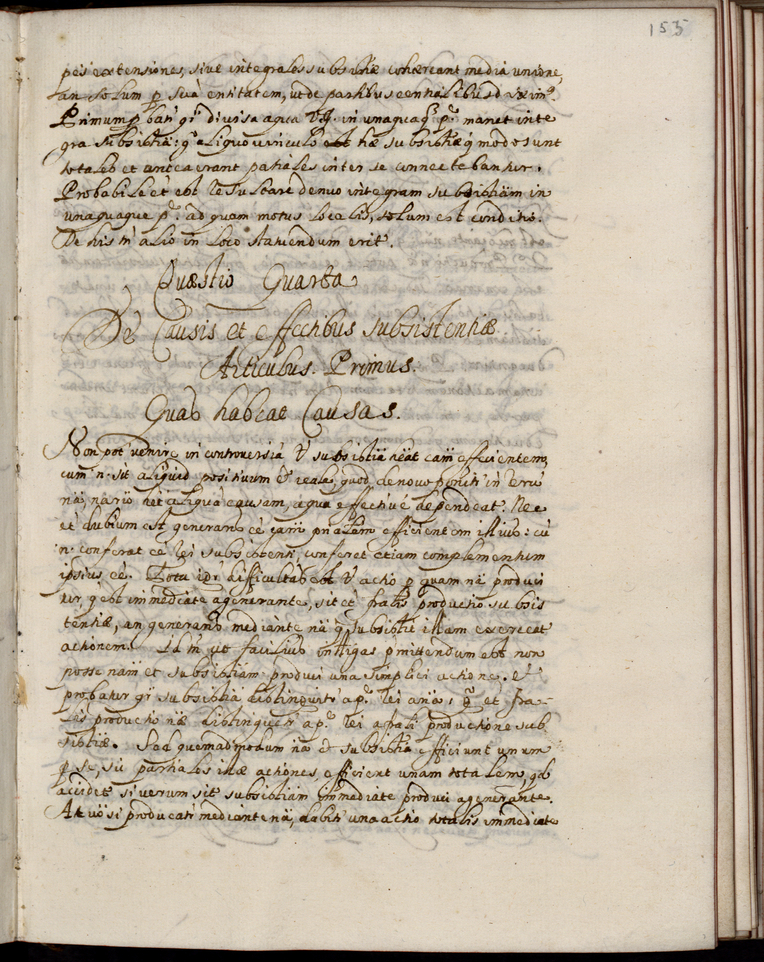 153
per extensiones, sive integrales subsistiæ cohæreant media unione,
an solum p suā entitatem, ut de partibus
Primum probatr qr divisa aqua v.g. in unaquaq; pe. manet inte
gra subsistia: gº aliquo vinculo hæ subsistiæ q modo sunt
totales et antea erant partiales inter se connectebantur.
Probabile et est resultare denuo integram subsistiam in
unaquaque pe. ad quam motus localis, solum est conditio.
De his tn alio in loco statuendum erit.
Quæstio Quarta
De Causis et effectibus subsistentiæ
Articulus. Primus.
Quas habeat Causas.
Non pot venire in controversiā v subsistia heat cam efficientem,
cum n. sit aliquid positivum et reale, quod denuo ponitr in reru
nā, nario het aliquā causam, a qua effective dependeat. Nec
et dubium est generans eē cam pnalem efficientem illius: cū
n. conferat eē rei subsistenti, conferet etiam complementum
ipsius eē. Tota igr difficultas est v actio p quam nā produci
tur, q est immediate a generante, sit et fralis productio subsis
tentiæ, an generans mediante nā q subsistit illam exerceat
actionem. Id ut facilius intligas pmittendum est non
posse nam et subsistiam produci una simplici actione. Et
probatur qr subsistia distinguitr a p. rei a nā, g et fra-
lis productio næ distinguetr a p. rei a frali productione sub
sistiæ. Sed quemadmodum nā et subsistia efficiunt unum
p se, sic partiales illæ actiones, efficient unam totalem, qd
accidet si verum sit subsistiam immediate produci a generante.
At vō si producatr mediante nā, dabitr una actio totalis immediate